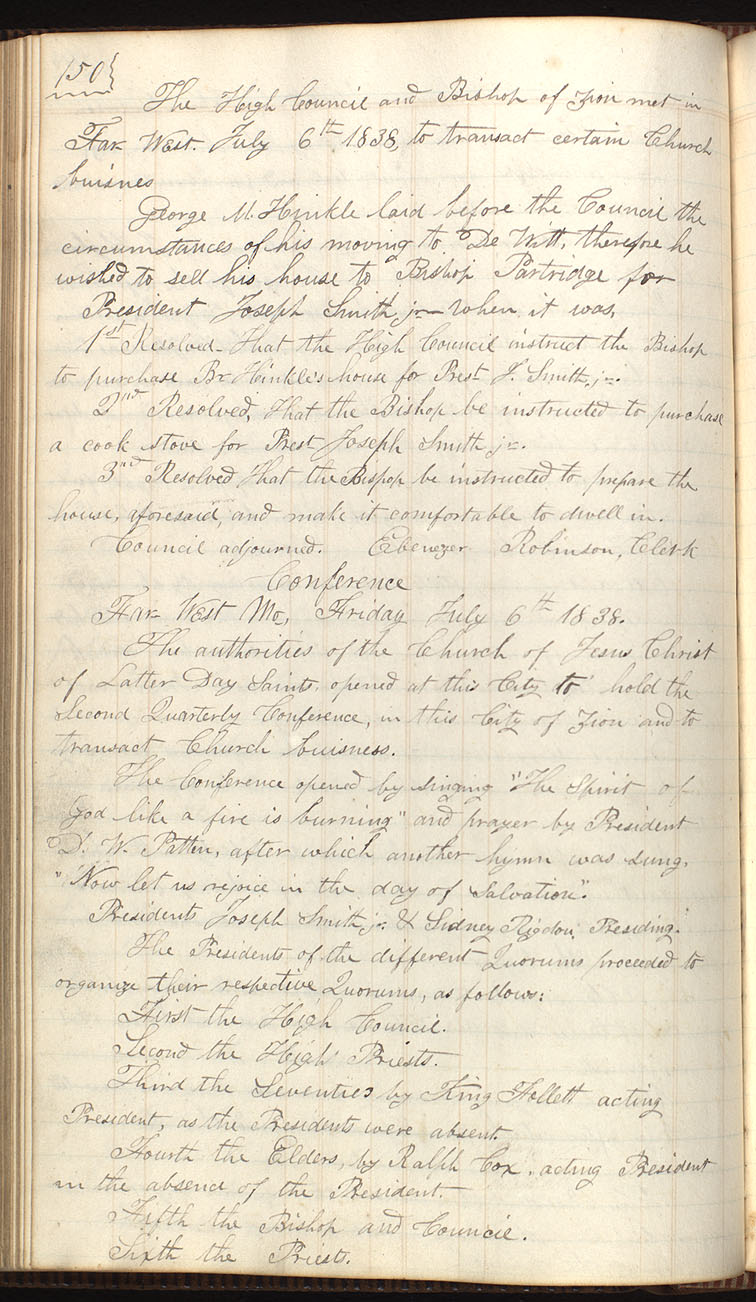 150}
The High Council and Bishop of Zion met in
Far West. July 6th 1838, to transact certain Church
buisnes
George M. Hinkle laid before the Council the
circumstances of his moving to De Witt, therefore he
wished to sell his house to Bishop Partridge for
President Joseph Smith jr— when it was,
1st Resolved— that the High Council instruct the Bishop
to purchase Br Hinkle's house for Prest J. Smith, jr.
2nd Resolved, that the Bishop be instructed to purchase
a cook stove for Prest Joseph Smith jr.
3rd Resolved that the Bishop be instructed to prepare the
house, aforesaid, and make it comfortable to dwell in.
Council adjourned. Ebenezer Robinson, Clerk
Conference
Far West Mo, Friday July 6th 1838.
The authorities of the Church of Jesus Christ
of Latter Day Saints, opened at this City to hold the
Second Quarterly Conference, in this City of Zion and to
transact Church buisness.
The Conference opened by singing "The Spirit of
God like a fire is burning" and prayer by President
D. W. Patten, after which another hymn was sung,
"Now let us rejoice in the day of salvation".
Presidents Joseph Smith, jr. & Sidney Rigdon Presiding.
The Presidents of the different Quorums proceeded to
organize their respective Quorums, as follows:
First the High Council.
Second the High Priests.
Third the Seventies by King Follett acting
President, as the Presidents were absent.
Fourth the Elders, by Ralph Cox, acting President
in the absence of the President.
Fifth the Bishop and Council.
Sixth the Priests.